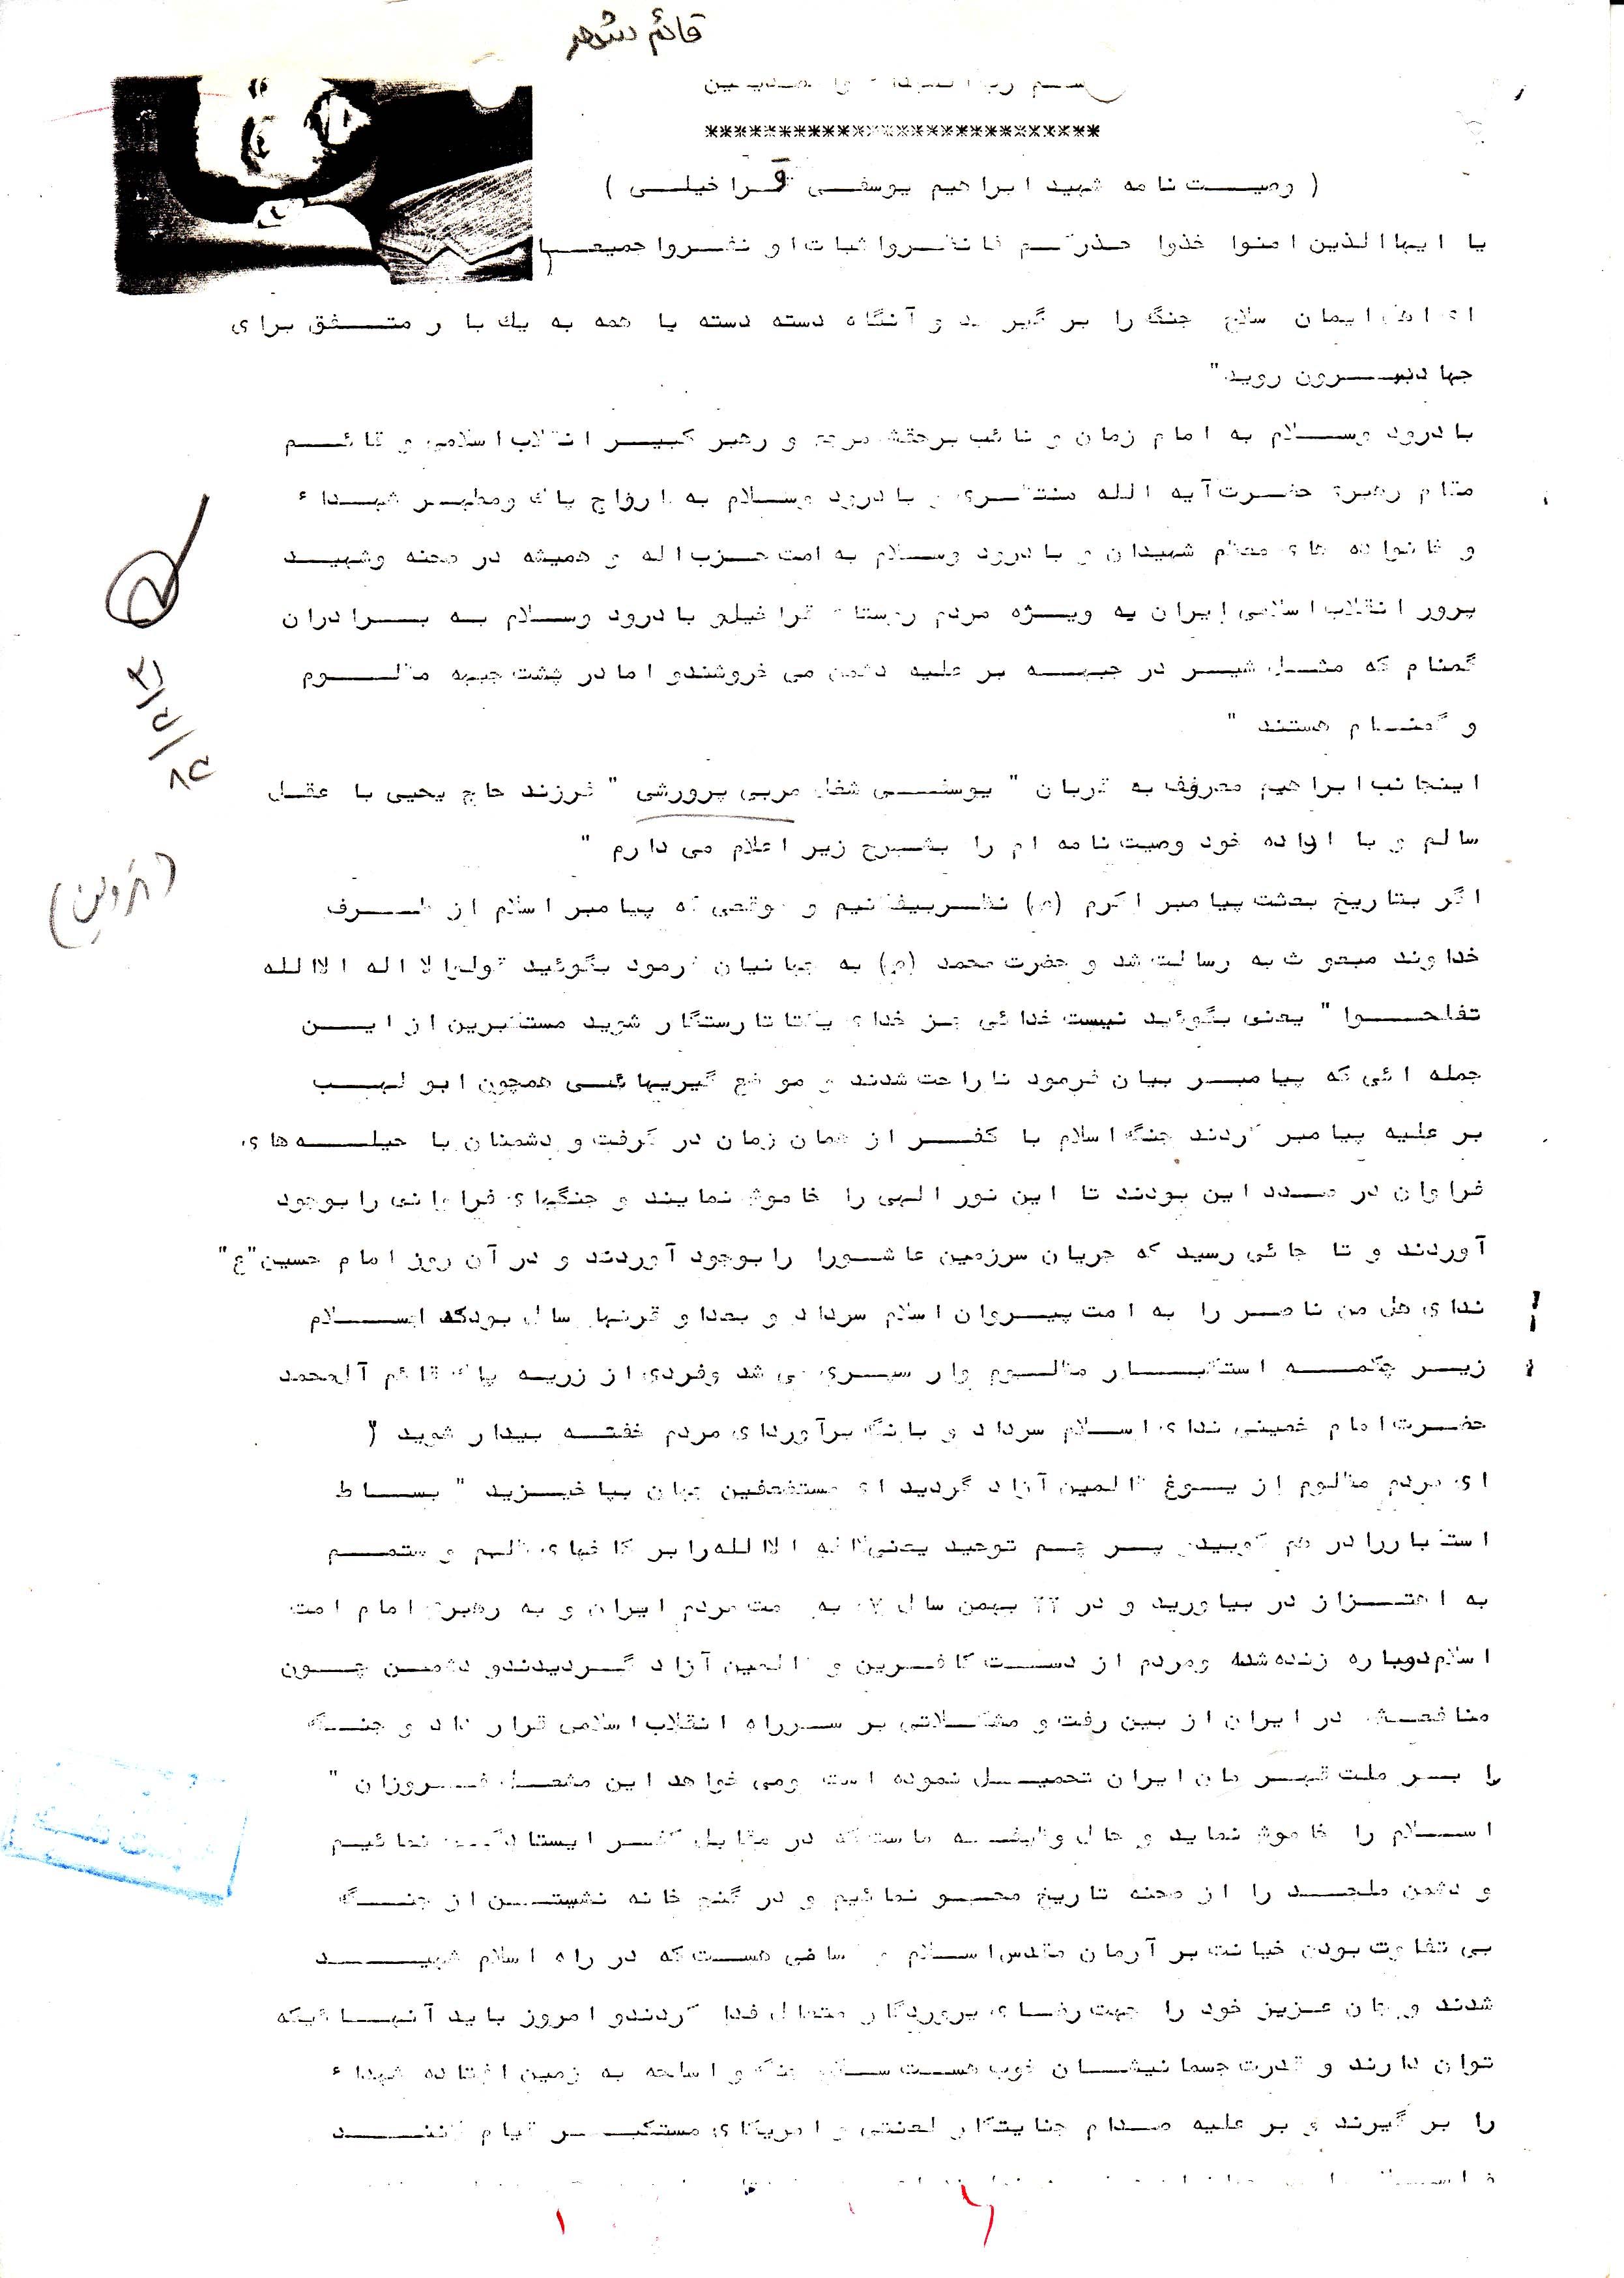 قائم شهر
بسم رب الشهداء والصدیقین
**************************
( وصیت نامه شهید ابراهیم یوسفی قراخیلی )
یا ایها الذین امنوا خذوا حذرکم فانفروا ثبات او نفروا جمیعا
ای اهل ایمان سلاح جنگ را برگیرید و آنگاه دسته دسته یا همه به یك بار متفق برای
جهاد بیرون روید"
با درود وسلام به امام زمان و نائب برحقش مرجع و رهبر کبیر انقلاب اسلامی و قائم
مقام رهبری حضرت آیه الله منتظری و با درود وسلام به ارواح پاك ومطهر شهداء
و خانواده های معظم شهیدان و با درود وسلام به امت حزب اله و همیشه در صحنه وشهید
پرور انقلاب اسلامی ایران به ویژه مردم روستای قراخیل و با درود وسلام به برادران
گمنام که مثل شیر در جبهه بر علیه دشمن می خروشندو اما در پشت جبهه مظلوم
و گمنام هستند "
اینجانب ابراهیم معروف به قربان " یوسفی شغل مربی پرورشی " فرزند حاج یحیی با عقل
سالم و با اراده خود وصیت نامه ام را بشرح زیر اعلام می دارم "
اگر بتاریخ بعثت پیامبر اکرم (ص) نظر بیفکنیم و موقعی که پیامبر اسلام از طرف
خداوند مبعوث به رسالت شد و حضرت محمد (ص) به جهانیان فرمود بگوئید قولوا لا اله الا الله
تفلحوا " یعنی بگوئید نیست خدائی جز خدای یکتا تا رستگار شوید مستکبرین از این
جمله ائی که پیامبر بیان فرمود ناراحت شدند و موضع گیریهائی همچون ابو لهب
بر علیه پیامبر کردند جنگ اسلام با کفر از همان زمان در گرفت و دشمنان با حیله های
فراوان در صدد این بودند تا این نور الهی را خاموش نمایند و جنگهای فراوانی را بوجود
آوردند و تا جائی رسید که جریان سرزمین عاشورا را بوجود آوردند و در آن روز امام حسین"ع"
ندای هل من ناصر را به امت پیروان اسلام سرداد و بعدا و قرنها سال بودکه اسلام
زیر چکمه استکبار مظلوم وار سپری می شد وفردی از زریه پاك قائم آل محمد
حضرت امام خمینی ندای اسلام سرداد و بانگ برآورد ای مردم خفته بیدار شوید
ای مردم مظلوم از یوغ ظالمین آزاد گردید ای مستضعفین جهان بپاخیزید " بساط
استکبار را در هم کوبید و پرچم توحید یعنی لا اله الا الله را بر کاخهای ظلم و ستم
به اهتزاز در بیاورید و در ۲۲ بهمن سال ۵۷ به مت مردم ایران و به رهبری امام امت
اسلام دوباره زنده شد ومردم از دست کافرین و ظالمین آزاد گردیدندو دشمن چون
منافعش در ایران از بین رفت و مشکلاتی بر سر راه انقلاب اسلامی قرار داد و جنگ
را بر ملت قهرمان ایران تحمیل نموده است ومی خواهد این مشعل فروزان "
اسلام را خاموش نماید و حال وظیفه ماست که در مقابل کفر ایستادگی نمائیم
و دشمن ملحد را از صحنه تاریخ محو نمائیم و در گنج خانه نشستن از جنگ
بی تفاوت بودن خیانت بر آرمان مقدس اسلام و کسانی هست که در راه اسلام شهید
شدند و جان عزیز خود را جهت رضای پروردگار متعال فدا کردندو امروز باید آنهائیکه
توان دارند و قدرت جسمانیشان خوب هست سلاح جنگ و اسلحه به زمین افتاده شهداء
را برگیرند و بر علیه صدام جنایتکار لعنتی و امریکای مستکبر قیام کنند